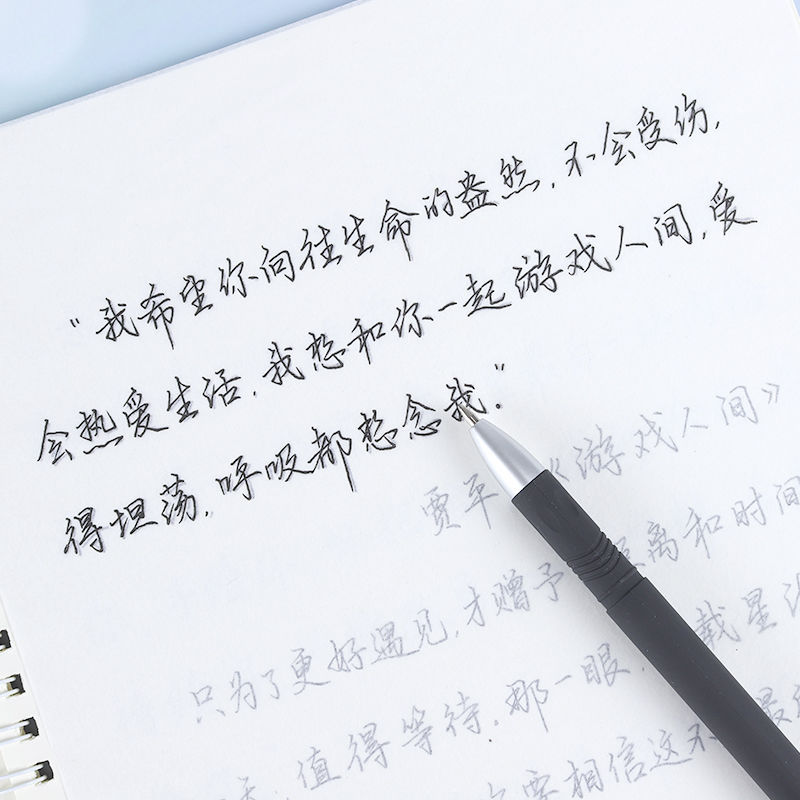 “我希望你向往生命的盎然,不会受伤,
会热爱生活,我想和你一起游戏人间,爱
得坦荡,呼吸都想念我.”
贾平 《游戏人间》
只为了更好遇见,才赠予 距离和时间
值得等待,那一眼, 载星
要相信这不 最